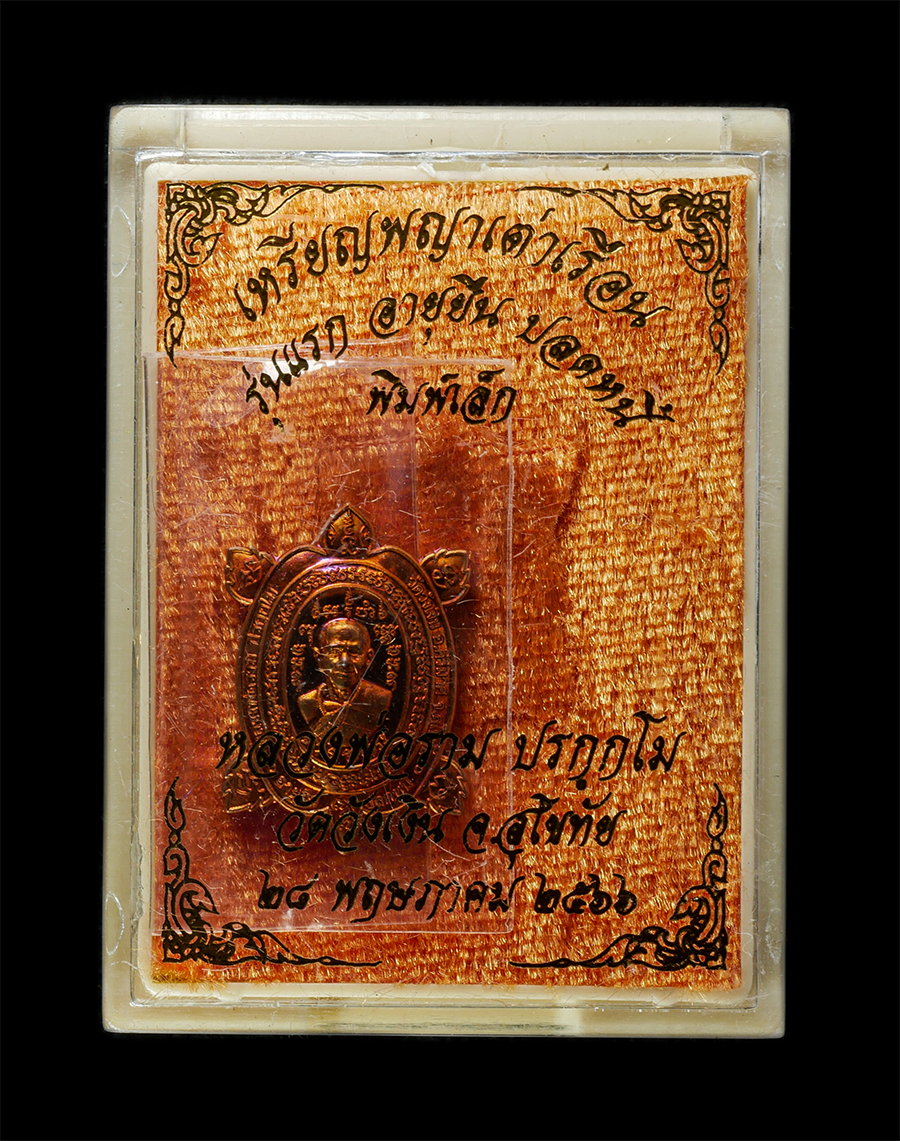 เหรียญพญาเต่าเรือน
รุ่นแรก อายุยืน ปลดหนี้
พิมพ์เล็ก
หลวงพ่อราม ปรกฺกโม
วัดวังเงิน จ.สุโขทัย
๒๘ พฤษภาคม ๒๕๖๖